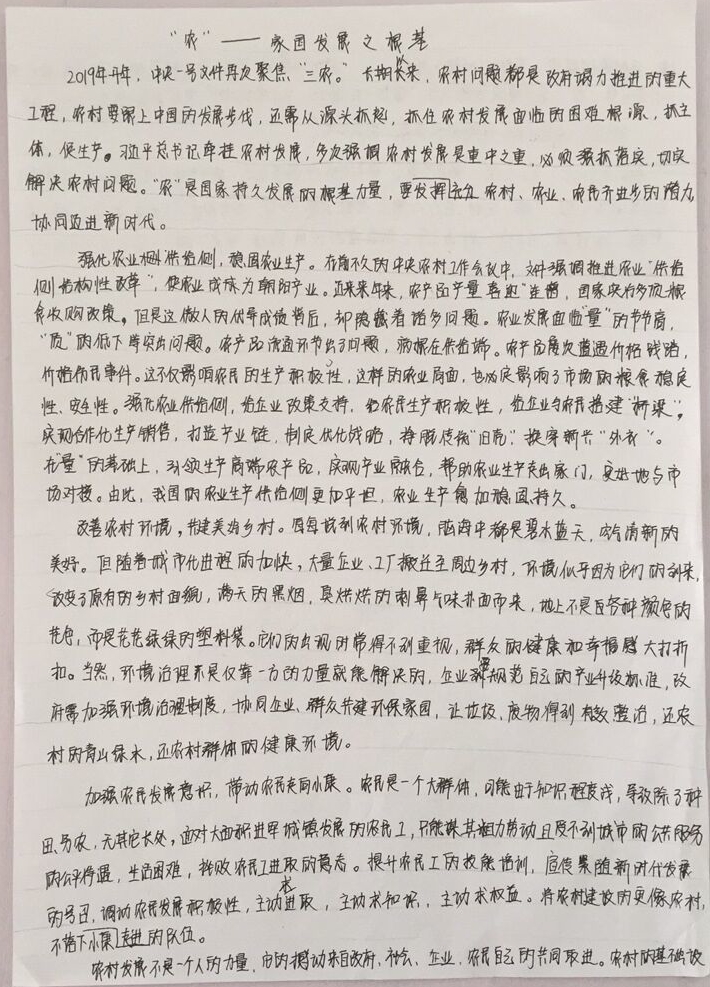 “农”——家国发展之根基
2019年开年，中央一号文件再次聚焦“三农。”长期以来，农村问题都是政府竭力推进的重大
工程，农村要跟上中国的发展步伐，还需从源头抓起，抓住农村发展面临的困难根源，抓主
体，促生产。习近平总书记牵挂农村发展，多次强调农村发展是重中之重，必须强抓落实，切实
解决农村问题。“农”是国家持久发展的根基力量，要发挥充分农村、农业、农民齐进步的潜力，
协同迈进新时代。
强化农业供给侧，稳固农业生产。在前不久的中央农村工作会议中，文件强调推进农业“供给
侧结构性改革”，使农业成为朝阳产业。近来年来，农产品产量喜迎“连增，国家实行多项粮
食收购政策。但是这傲人的优异成绩背后，却隐藏着诸多问题。农业发展面临“量”的节节高，
“质”的低下等突出问题。农产品流通环节出了问题，病根在供给端。农产品屡次遭遇价格
价格伤民事件。这不仅影响农民的生产积极性，这样的农业局面，也必定影响了市场的粮食稳定
性、安全性。强化农业供给侧，给企业政策支持，给农民生产积极性，给企业与农民搭建“桥梁”，
实现合作化生产销售，打造产业链，制定优化战略，挣脱传统“旧壳”换穿新兴“外衣”。
在“量”的基础上，引领生产高端农产品，实现产业融合，帮助农业生产走出家门，更进一地与市
场对接。由此，我国的农业生产供给侧更加平坦，农业生产愈加稳固、持久。
改善农村环境，共建美好乡村。每每谈到农村环境，脑海中都是碧水蓝天，空气清新的
美好。但随着城市化进程的加快，大量企业、工厂搬迁至周边乡村，环境似乎因为它们的到来，
改变了原有的乡村面貌，满天的黑烟，臭烘烘的刺鼻气味扑面而来，地上不是各种颜色的
花包，而是花花绿绿的塑料袋。它们的出现时常得不到重视，群众的健康和幸福感大打折
扣。当然，环境治理不是仅靠一方的力量就能解决的，企业要规范自己的产业升级标准，政
府需加强环境治理制度，协同企业、群众共建环保家园，让垃圾，废物得到有效整治，还农
村的青山绿水，还农村群体的健康环境。
加强农民发展意识，带动农民共同小康。农民是一个大群体，可能由于知识程度浅，导致除了种
田务农，无其它长处，面对大面积进军城镇发展的农民工，只能谋其粗力劳动且享不到城市的公共服务
的公平待遇，生活困难，挫败农民工进取的意志。提升农民工的技能培训，宣传紧随新时代发展
的号召，调动农民发展积极性，主动求进取，主动求知识，主动求权益。将农村建设的更像农村，
不落下小康走进的队伍。
农村发展不是一个人的力量，它的撬动来自政府、社会、企业、农民自己的共同取进。农村的基础设